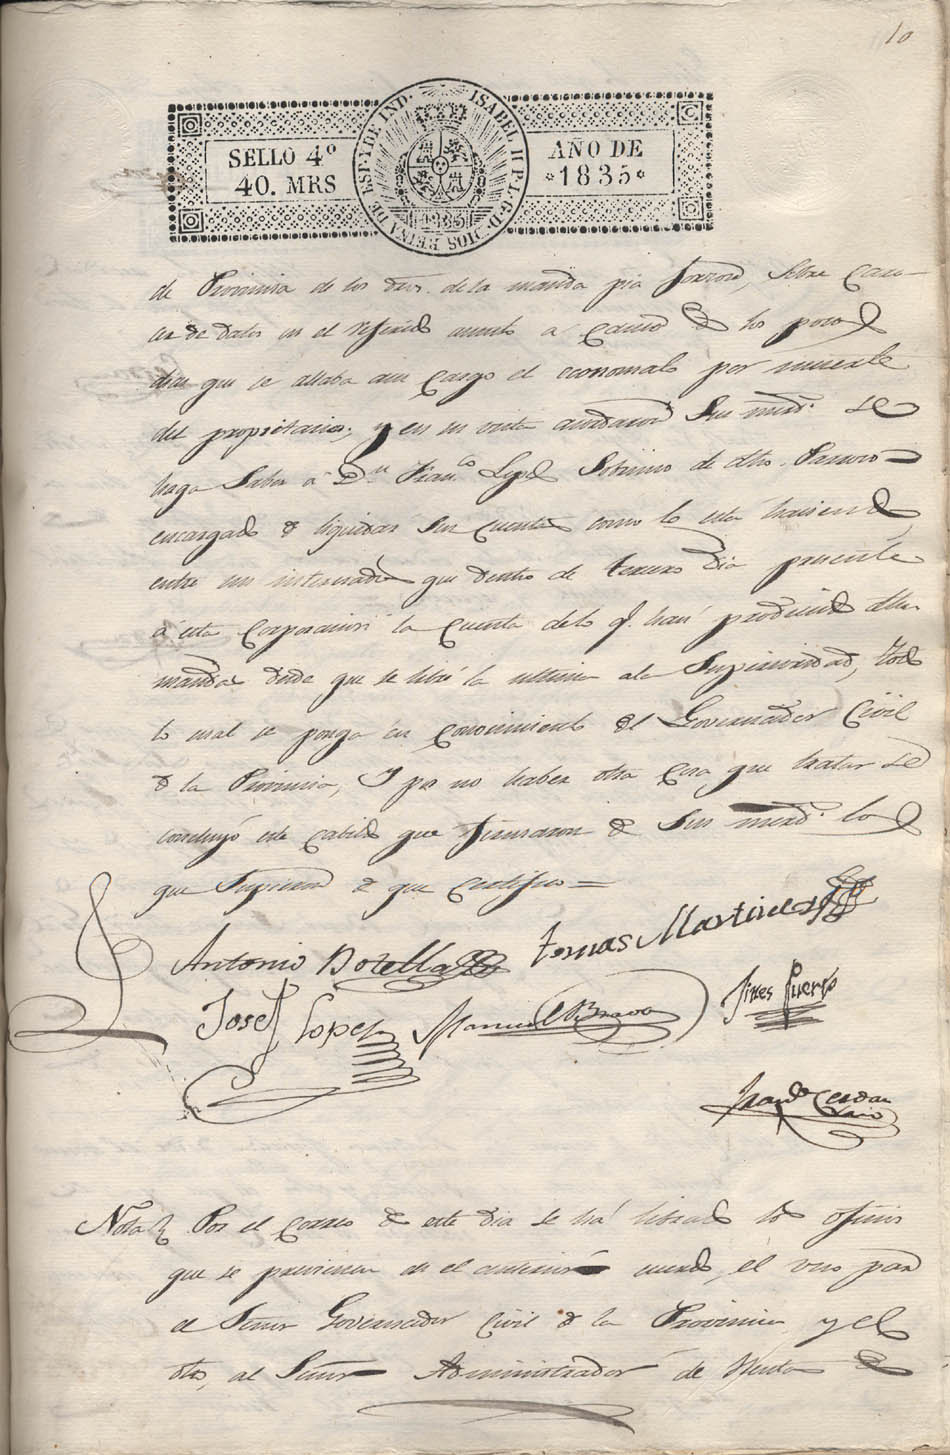 10
SELLO 4º
40. MRS
ISABEL II P. L. G. D. DIOS REINA DE ESP. Y DE IND.
1835
AÑO DE
1835
de Provincia de los dros. de la manda pia forzosa, sobre
de datos en el referido a causa de los pocos
dias que se allaba a su cargo el economato por muerte
del propietario; y en su vista acordaron Sus mrds. se
haga Saber á Dn. Franco. Lopez Sobrino de dho. Parroco
encargado de liquidar sus cuentas como lo está haciendo
entre sus interesados que dentro de tercero dia presente
á esta Corporacion la Cuenta de lo q. han producido dhas.
mandas desde que se libró la ultima a la Superioridad, todo
lo cual se ponga en conocimiento del Governador Civil
de la Provincia, Y por no haber otra cosa que tratar se
concluyó este cabildo que firmaron de Sus mrds. los
que Supieron de que Certifico =
Antonio Botella
Tomas Martinez
Jose Lopez
Manuel Bravo
Jines Puerto
Franco Cerdan
Srio
Nota Por el correo de este dia se há librado los oficios
que se previenen en el anterior acuerdo, el uno para
el Señor Governador Civil de la Provincia y el
otro, al Señor Administrador de Rentas